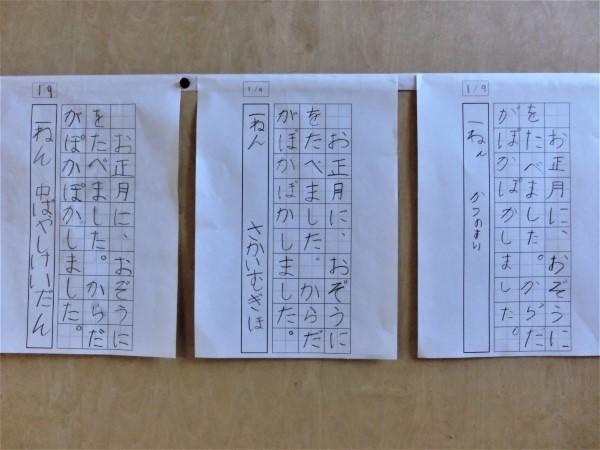 1/9
お正月に、おぞうに
をたべました。からだ
がぽかぽかしました。
一ねん
1/9
お正月に、おぞうに
をたべました。からだ
がぽかぽかしました。
一ねん さかいむぎほ
1/9
お正月に、おぞうに
をたべました。からだ
がぽかぽかしました。
一ねん 中ばやしけいだん